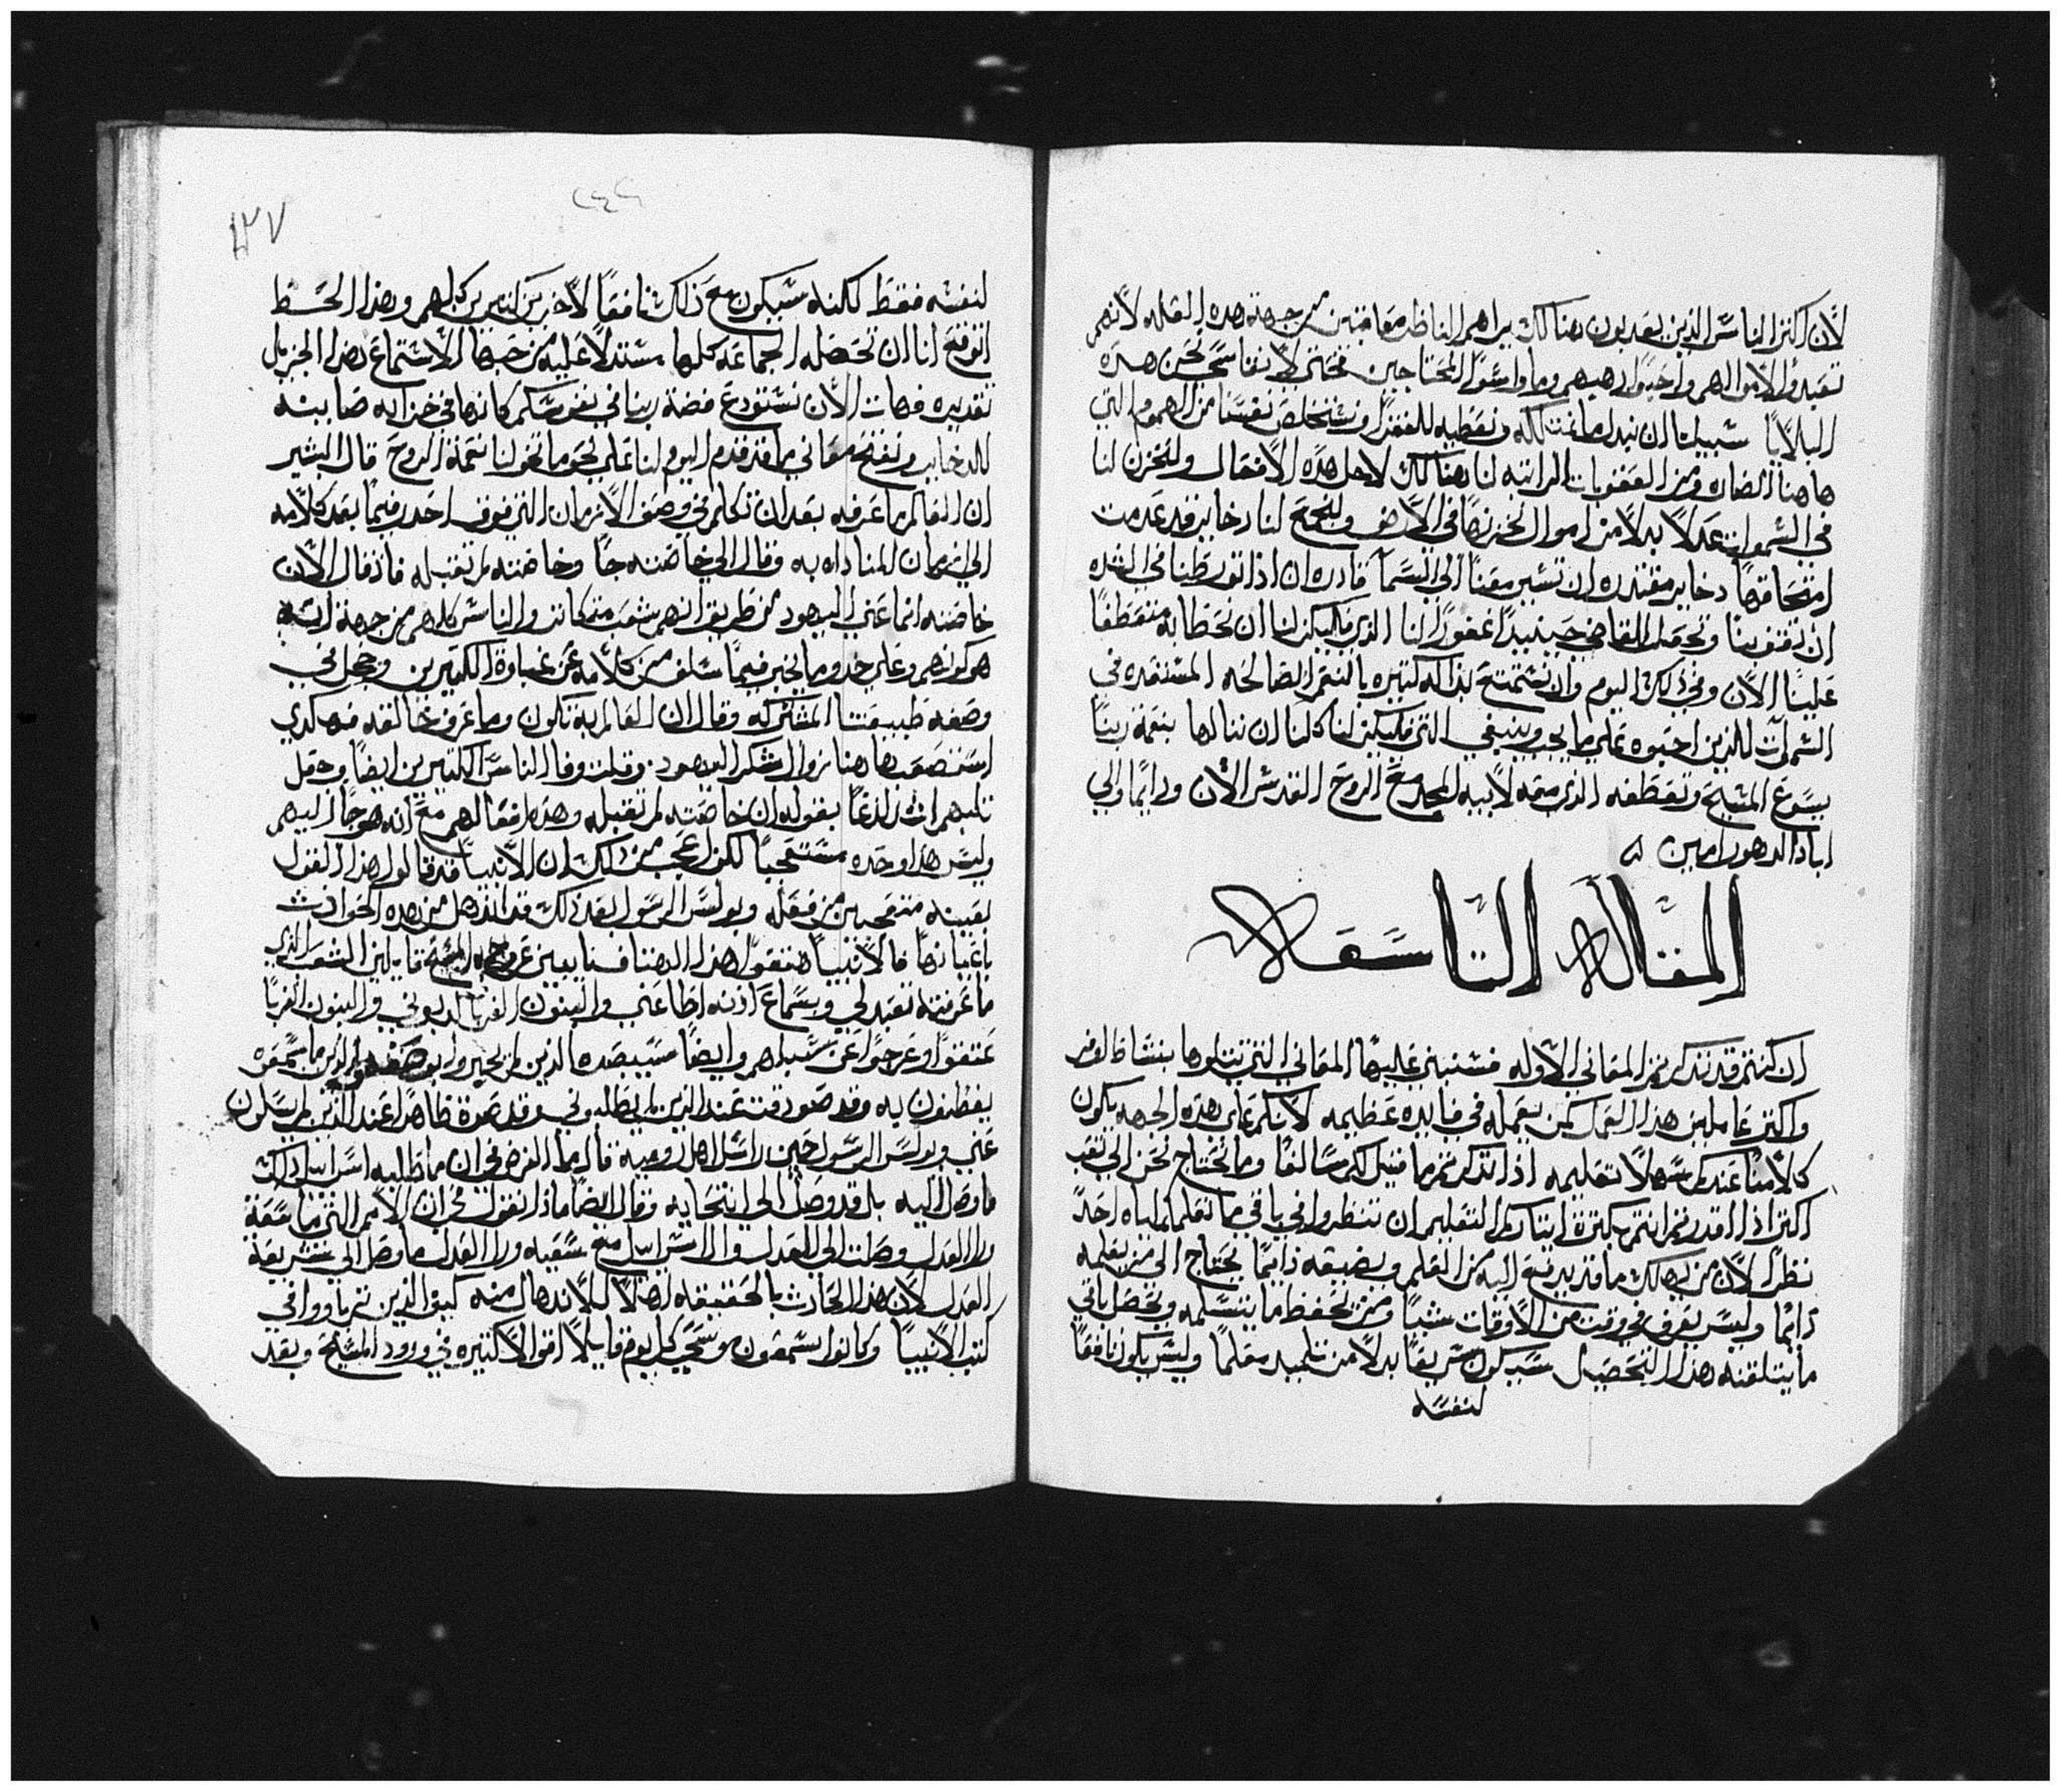 لان اكتر الناس الدين يعدبون هنالك يراهم الناظر معاقبين من جهة هده العله لانهم
تعبدوا لاموالهم واحبوا دهبهم وما واسوا المحتاجين فحتى لا نقاسي نحن هده
البلايا سبيلنا ان نبدل ذلك كله ونعطيه للفقرا ونستخلص نفسنا من الهموم التي
هاهنا الضاره ومن العقوبات الراتبه لنا هنالك لاجل هده الافعال ولنخزن لنا
في السموات عدلا بدلا من اموال نخزنها في الارض ولنجمع لنا دخاير قد عدمت
امتحاقها دخاير مقتدره ان تسير معنا الى السما قادره ان اذا تورطنا في الشده
ان تقف بنا وتجعل القاضي حينيدا غفورا لنا الذي فليكن لنا ان نحظا به متعطفا
علينا الان وفي ذلك اليوم وان نستمتع بداله كتيره بالنعم الصالحه المستعده في
السموات للذين احبوه على ما يجب وينبغي التي فليكن لنا كلنا ان ننالها بنعمة ربنا
يسوع المسيح وتعطفه الذي معه لابيه المجد مع الروح القدس الان ودايما والي
اباد الدهور امين
المقاله التاسعه
ان كنتم قد تدكرتم المعاني الاوله فسنبني عليها المعاني التي تتلوها بنشاط اوفر
واكتر عاملين هذا العمل كمن يعمله في فايده عظيمه لانكم على هده الجهه يكون
كلامنا عندكم سهلا تعليمه اذا تدكرتم ما قيل لكم سالفا وما نحتاج نحن الى تعب
اكتر اذا اقدرتم انتم بكترة ايتاركم التعليم ان تنظروا في باقي ما نعلمكم اياه احد
نظرا لان من يهلك ما قد يدفع اليه من العلم ويضيعه دايما يحتاج الى من يعلمه
دايما وليس يعرف في وقت من الاوقات شيا ومن تحفظ ما يتسلمه وتحصل باقي
ما يتلقنه بهذا التحصيل سيكون سريعا بدلا من تلميد معلما وليس يكون نافعا
لنفسه
٢٤٤
١٢٧
لنفسه فقط لكنه سيكون مع ذلك نافعا لاخرين كتيرين كلهم وبهذا الحظ
اتوقع انا ان تحصله الجماعه كلها مستدلا عليه من حبها الاستماع بهذا الجزيل
تقديره فهات الان نستودع فضة ربنا في نفوسكم كانها في خزانه صاينه
للدخاير ونفتح معاني ما قد قدم اليوم لنا على نحو ما تخولنا نعمة الروح قال البشير
ان العالم ما عرفه بعد ان تكلم في وصف الازمان التي فوق احدر فيما بعد كلامه
الى ازمان المناداه به وقال الى خاصته جا وخاصته لم تقبله فاذ قال الان
خاصته انما عني اليهود من طريق انهم شعب متمكانز والناس كلهم من جهة انه
هو كونهم وعلى حدو ما تحير فيما سلف من كلامه عن غباوة الكتيرين وخجل في
وصفه طبيعتنا المشتركه وقال ان العالم به تكون وما عرف خالقه فهكدي
استصعب هاهنا زوال شكر اليهود وقلت وفا الناس الكتيرين ايضا وجعل
تلبهم اشد لدغا بقوله ان خاصته لم تقبله وهدا فعالهم مع انه هو جا اليهم
وليس هدا وحده مستعجبا لكن اعجب من دلك ان الانبيا قد قالوا هذا القول
بعينه متعجبين من فعله وبولس الرسول بعد ذلك قد اندهل من هده الحوادث
باعيانها فالانبيا هتفوا هذا الهتاف نايبين عن وجه المسيح قايلين الشعب الذي
ما عرفته تعبد لي وبسماع اذنه اطاعني والبنون الغربا كدبوني والبنون الغربا
عتقوا وعرجوا عن سبلهم وايضا سيبصره الذين لم يخبروا بوصفه والذين ما سمعوه
يفطنون به وقد صودفت عند الذين لم يطلبوني وقد صرت ظاهرا عند الذين لم يسلون
عني وبولس الرسول حين راسل اهل روميه قال ما الغرض في ان ما طلبه اسراييل ذلك
ما وصل اليه بل قد وصل الى انتخابه وقال ايضا ماذا نقول في ان الامم التي ما سعت
ورا العدل وصلت الى العدل وال اسراييل مع سعيه ورا العدل ما وصل الى شريعة
العدل لان هذا الحادث بالحقيقه اهلا للاندهال منه كيف الذين تربوا في
كتب الانبيا وكانوا يسمعون موسى كل يوم قايلا اقوالا كتيره في ورود المسيح وبعد